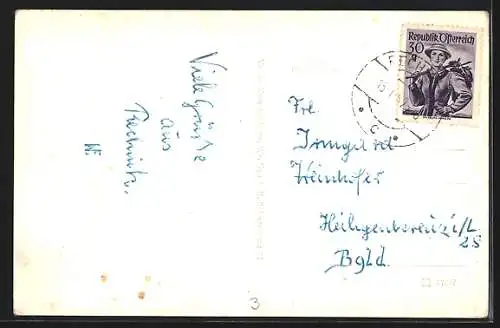 Viele Grüsse
aus
Rechnitz.
Republik Österreich
30
g
Frl
Irmgard
Weinhofer
Heiligenkreuz i/L
25
Bgld.
3